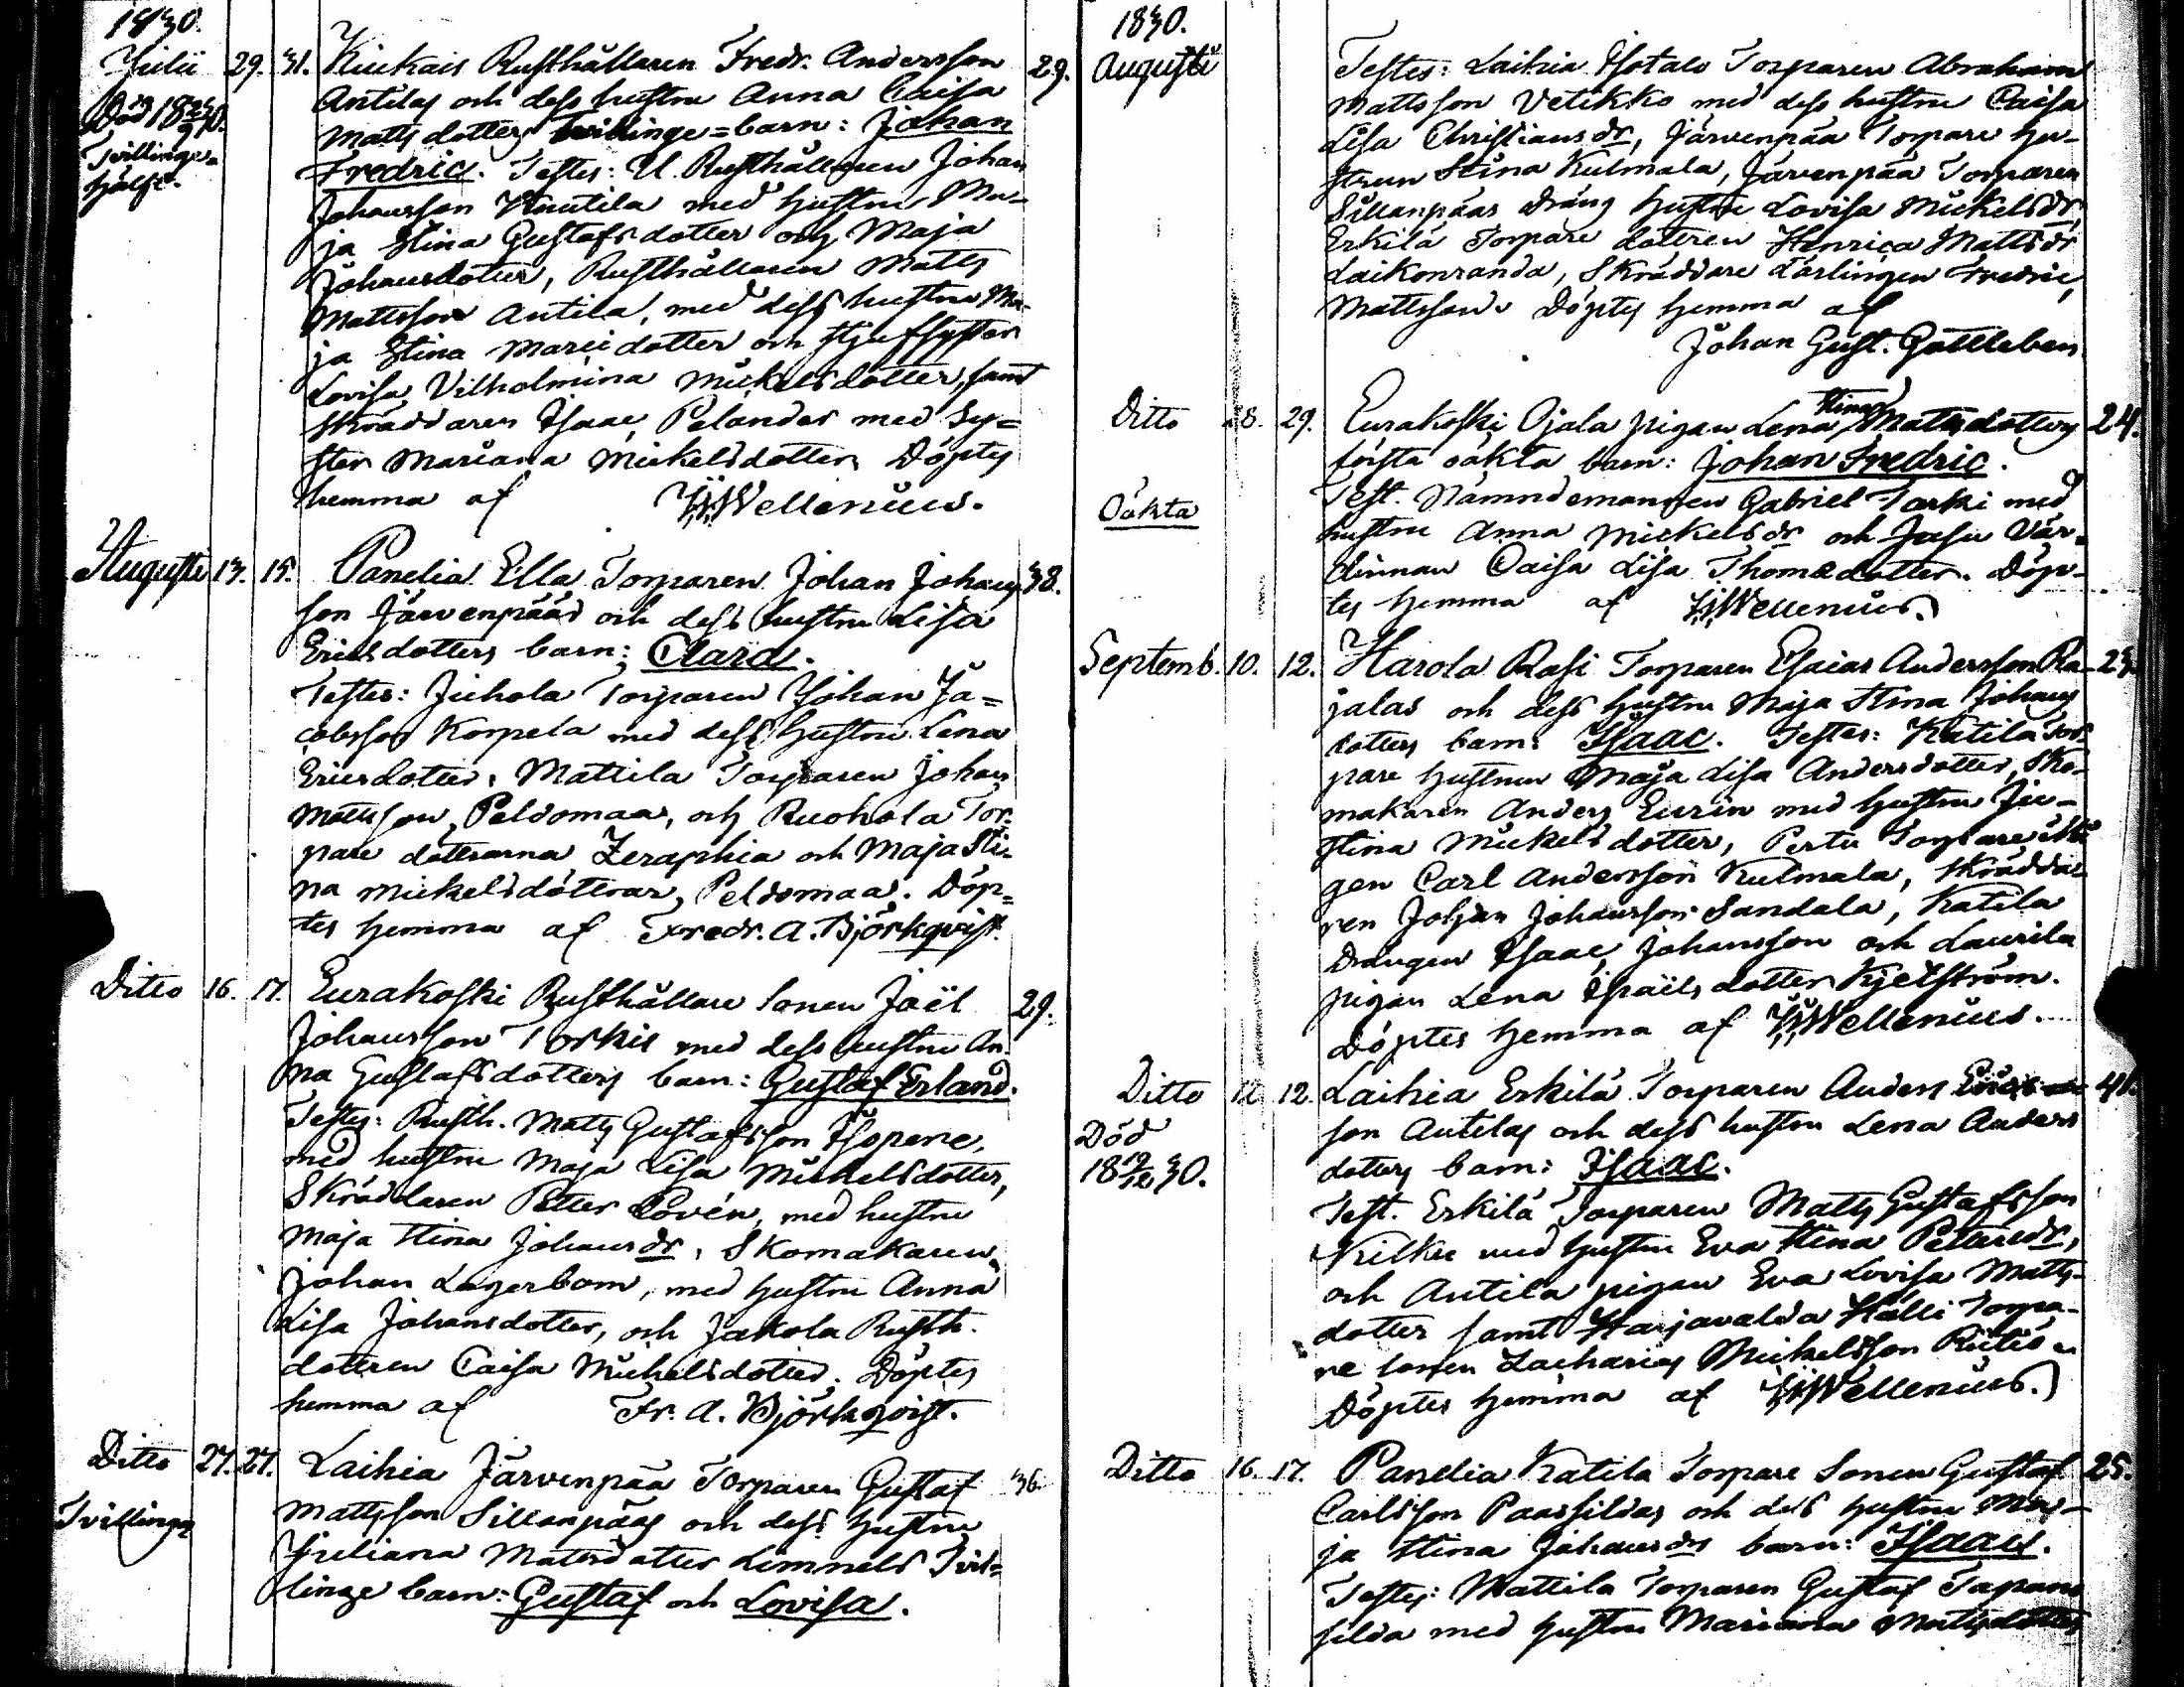 1830.
Julii 29. 31. Kiukais Rusthållaren Fredr. Andersson 29.
Antilas och dess hustru Anna Caisa
Matts dotters Tvillinge=barn: Johan
Fredric. Testes: U. Rusthållaren Johan
Johansson Knutila med hustru Ma-
ja Stina Gustafsdotter och Maja
Johansdotter, Rusthållaren Matts
Mattsson Antila, med dess hustru Ma-
ja Stina dotter och
Lovisa Vilhelmina Mickelsdotter, samt
Skräddaren Isaac Pelander med Sy=
ster Mariana Mickelsdotter. Döptes
hemma af Wellenius.
Död 18 30.
Tvillinge
hjälft.
Augusti 13. 15. Panelia Ella Torparen Johan Johans 38.
son Järvenpääs och dess hustru Lisa
Ericsdotters barn: Clara.
Testes: Jichola Torparen Johan Ja=
cobsson Korpela med dess hustru Lena
Ericsdotter, Mattila Torparen Johan
Mattsson, Peldomaa, och Ruohola Tor-
pare döttrarna Zeraphia och Maja Sti-
na Mickelsdöttrar, Peldomaa. Döp=
tes hemma af Fredr. A. Björkqvist.
Ditto 16. 17. Eurakoski Rusthållare Sonen Joël 29.
Johansson Torkis med dess hustru An-
na Gustafsdotters barn: Gustaf Erland.
Testes: Rusth. Matts Gustafsson
med hustru Maja Lisa Mickelsdotter,
Skräddaren Petter Lovén, med hustru
Maja Stina Johansdr, Skomakaren
Johan Lagerbom, med hustru Anna
Lisa Johansdotter, och Jakola Rusth.
dottren Caisa Mickelsdotter. Döptes
hemma af Fr. A. Björkqvist.
Ditto 27. 27. Laihia Järvenpää Torparen Gustaf 36.
Mattsson Sillanpääs och dess hustru
Juliana Mattsdotter Limnels Tvil=
linge barn: Gustaf och Lovisa.
Tvillingar
1830.
Augusti
Testes: Laihia Isotalo Torparen Abraham
Mattsson Vetikko med dess hustru Caisa
Lisa Christiansdr, Järvenpää Torpare hu-
strun Stina Kulmala, Järvenpää Torparen
Sillanpääs Dräng hustru Lovisa Mickelsdr,
Erkilä Torpare dottren Henrica Mattsdr
Laikonranda, Skräddare Lärlingen Fredric
Mattsson. Döptes hemma af
Johan Gust. Gottleben
Ditto 28. 29. Eurakoski Ojala pigan Lena Stina Mattsdotters 24.
första oäkta barn: Johan Fredric.
Test. Nämndemannen Gabriel Torki med
hustru Anna Mickelsdr och Jasu Vär-
dinnan Caisa Lisa Thomædotter. Döp-
tes hemma af Wellenius.
Oäkta
Septemb. 10. 12. Harola Rasi Torparen Esaias Andersson Ra- 23.
jalas och dess hustru Maja Stina Johans
dotters barn: Isaac. Testes: Katila Tor-
pare hustrun Maja Lisa Andersdotter, Sko-
makaren Anders Eurin med hustru Ju-
stina Mickels dotter, Pertu Torpare
gen Carl Andersson Kulmala, Skrädda-
ren Johan Johansson Sandala, Katila
Drängen Isaac Johansson och Laurila
pigan Lena Israels dotter Kjelström.
Döptes hemma af Wellenius.
Ditto 12. 12. Laihia Erkilä Torparen Anders Erics- 41.
son Antilas och dess hustru Lena Anders
dotters barn: Isaac.
Test. Erkilä Torparen Matts Gustafsson
Kilkke med hustru Eva Stina Pettersdr,
och Antila pigan Eva Lovisa Matts-
dotter samt Harjavalda Hälli Torpa-
re sonen Zacharias Mickelsson
Döptes hemma af Wellenius.
Död
18 19/12 30.
Ditto 16. 17. Panelia Katila Torpare Sonen Gustaf 25.
Carlsson Paassildas och dess hustru Ma-
ja Stina Johansdrs barn: Isaac.
Testes: Mattila Torparen Gustaf Tapani
silda med hustru Mariana Mattsdotter